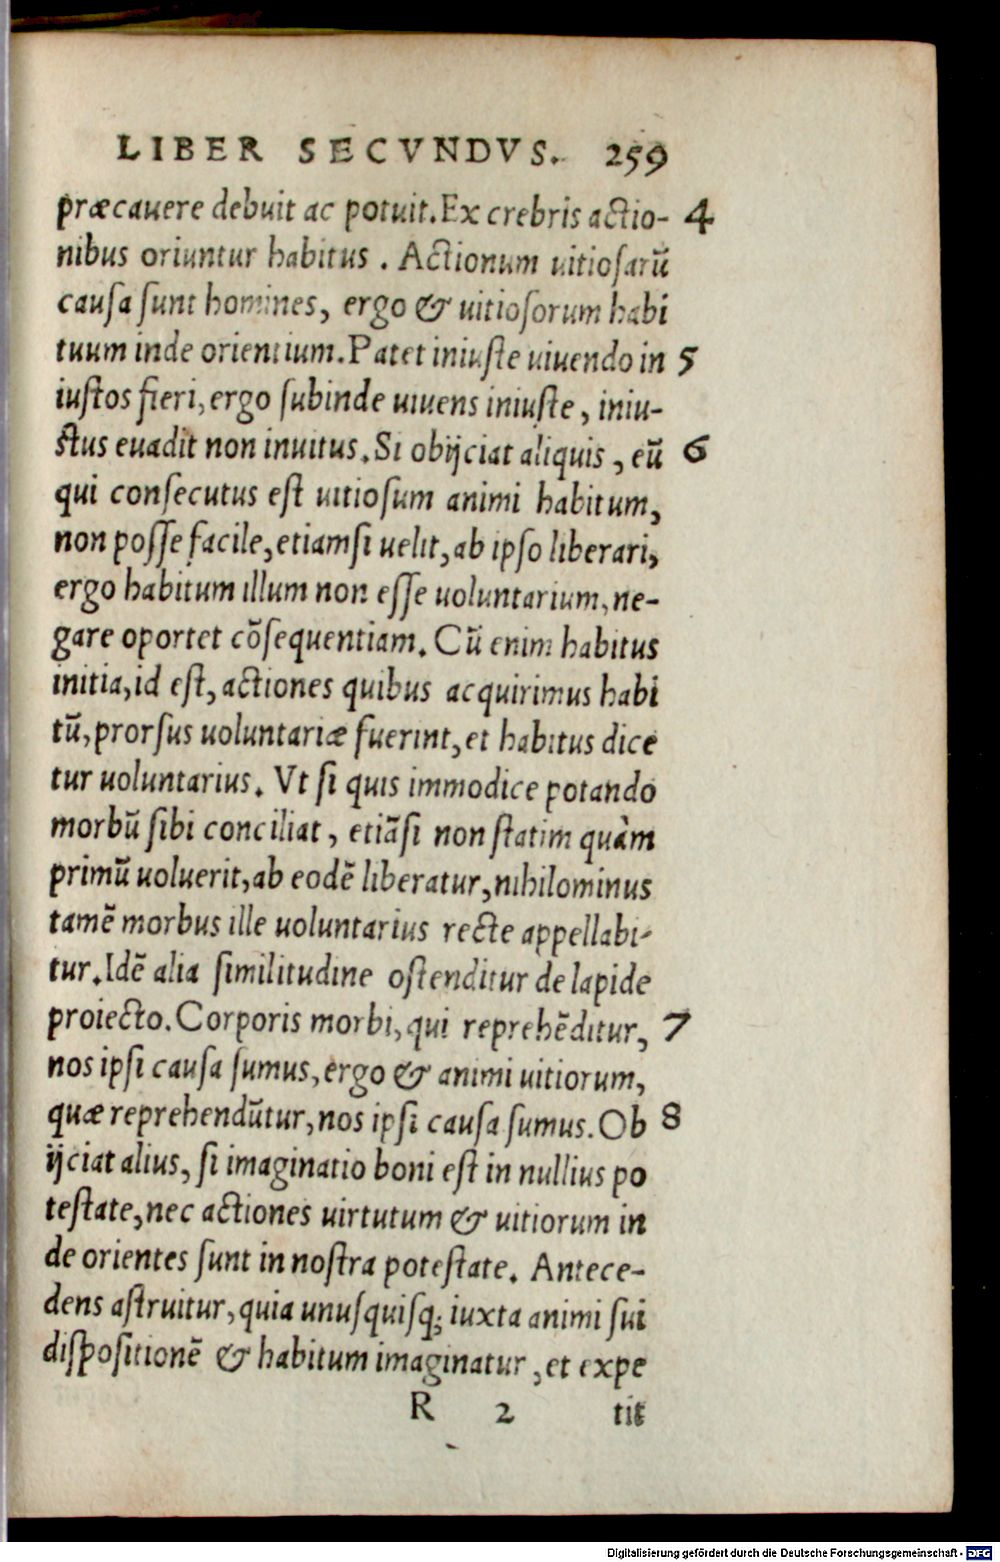 LIBER SECVNDVS. 259
præcauere debuit ac potuit. Ex crebris actio- 4
nibus oriuntur habitus. Actionum uitiosarū
causa sunt homines, ergo & uitiosorum habi
tuum inde orientium. Patet iniuste uiuendo in 5
iustos fieri, ergo subinde uiuens iniuste, iniu-
stus euadit non inuitus. Si obijciat aliquis, eū 6
qui consecutus est uitiosum animi habitum,
non posse facile, etiamsi uelit, ab ipso liberari,
ergo habitum illum non esse uoluntarium, ne-
gare oportet cōsequentiam. Cū enim habitus
initia, id est, actiones quibus acquirimus habi
tū, prorsus uoluntariæ fuerint, et habitus dice
tur uoluntarius. Vt si quis immodice potando
morbū sibi conciliat, etiāsi non statim quàm
primū uoluerit, ab eodē liberatur, nihilominus
tamē morbus ille uoluntarius recte appellabi-
tur. Idē alia similitudine ostenditur de lapide
proiecto. Corporis morbi, qui reprehēditur, 7
nos ipsi causa sumus, ergo & animi uitiorum,
quæ reprehendūtur, nos ipsi causa sumus. Ob 8
ijciat alius, si imaginatio boni est in nullius po
testate, nec actiones uirtutum & uitiorum in
de orientes sunt in nostra potestate. Antece-
dens astruitur, quia unusquisq; iuxta animi sui
dispositionē & habitum imaginatur, et expe
R 2 tit
Digitalisierung gefördert durch die Deutsche Forschungsgemeinschaft - DFG